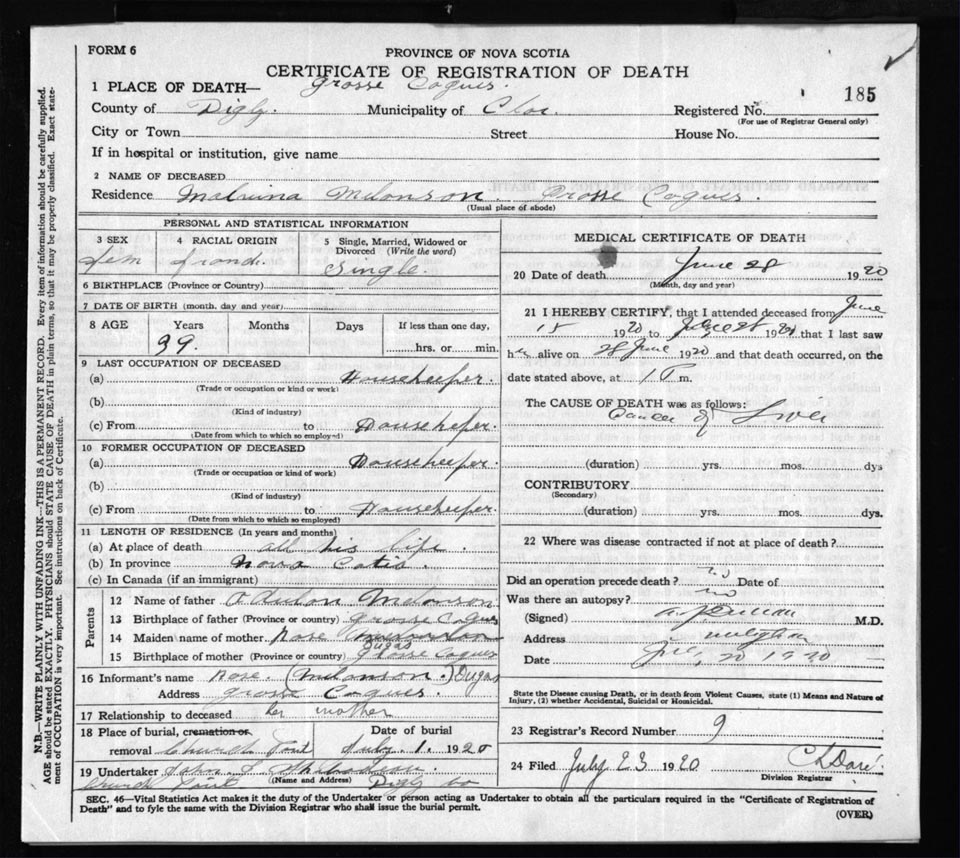 FORM 6
PROVINCE OF NOVA SCOTIA
CERTIFICATE OF REGISTRATION OF DEATH
185
1 PLACE OF DEATH— Grosse Coques.
County of Digby. Municipality of Clare. Registered No.
(For use of Registrar General only)
City or Town Street House No.
If in hospital or institution, give name
2 NAME OF DECEASED
Residence Melanson. Grosse Coques.
(Usual place of abode)
PERSONAL AND STATISTICAL INFORMATION
3 SEX 4 RACIAL ORIGIN 5 Single, Married, Widowed or Divorced (Write the word)
Fem single.
6 BIRTHPLACE (Province or Country)
7 DATE OF BIRTH (month, day and year)
8 AGE Years Months Days If less than one day,
39. hrs. or min.
9 LAST OCCUPATION OF DECEASED
(a) Housekeeper.
(Trade or occupation or kind or work)
(b)
(Kind of industry)
(c) From to Housekeper.
(Date from which to which so employed)
10 FORMER OCCUPATION OF DECEASED
(a) Housekeeper.
(Trade or occupation or kind of work)
(b)
(Kind of industry)
(c) From to Housekeper.
(Date from which to which so employed)
11 LENGTH OF RESIDENCE (In years and months)
(a) At place of death all his life.
(b) In province Nova Cotis.
(c) In Canada (if an immigrant)
Parents
12 Name of father Melanson
13 Birthplace of father (Province or country) Grosse Coques
14 Maiden name of mother. Rose Dugas
15 Birthplace of mother (Province or country) Grosse Coques
16 Informant's name Rose. (Melanson.) Dugas
Address grosse Coques.
17 Relationship to deceased her mother
18 Place of burial, cremation or removal Church Point Date of burial July. 1. 1920
19 Undertaker John Thibodeau
(Name and Address)
Church Point Digby co
MEDICAL CERTIFICATE OF DEATH
20 Date of death June 28 1920
(Month, day and year)
21 I HEREBY CERTIFY, that I attended deceased from June
15 1920 to June 28 1920 that I last saw
her alive on 28 June 1920 and that death occurred, on the
date stated above, at 1 P m.
The CAUSE OF DEATH was as follows:
Cancer of Liver
(duration) yrs. mos. dys
CONTRIBUTORY
(Secondary)
(duration) yrs. mos. dys.
22 Where was disease contracted if not at place of death?
Did an operation precede death? no Date of
Was there an autopsy? no
(Signed) M.D.
Address
Date 1920
State the Disease causing Death, or in death from Violent Causes, state (1) Means and Nature of Injury, (2) whether Accidental, Suicidal or Homicidal.
23 Registrar's Record Number 9
24 Filed July 23 1920
Division Registrar
SEC. 46—Vital Statistics Act makes it the duty of the Undertaker or person acting as Undertaker to obtain all the particulars required in the "Certificate of Registration of
Death" and to fyle the same with the Division Registrar who shall issue the burial permit.
(OVER)
N.B.—WRITE PLAINLY WITH UNFADING INK—THIS IS A PERMANENT RECORD. Every item of information should be carefully supplied.
AGE should be stated EXACTLY. PHYSICIANS should STATE CAUSE OF DEATH in plain terms, so that it may be properly classified. Exact state-
ment of OCCUPATION is very important. See instructions on back of Certificate.